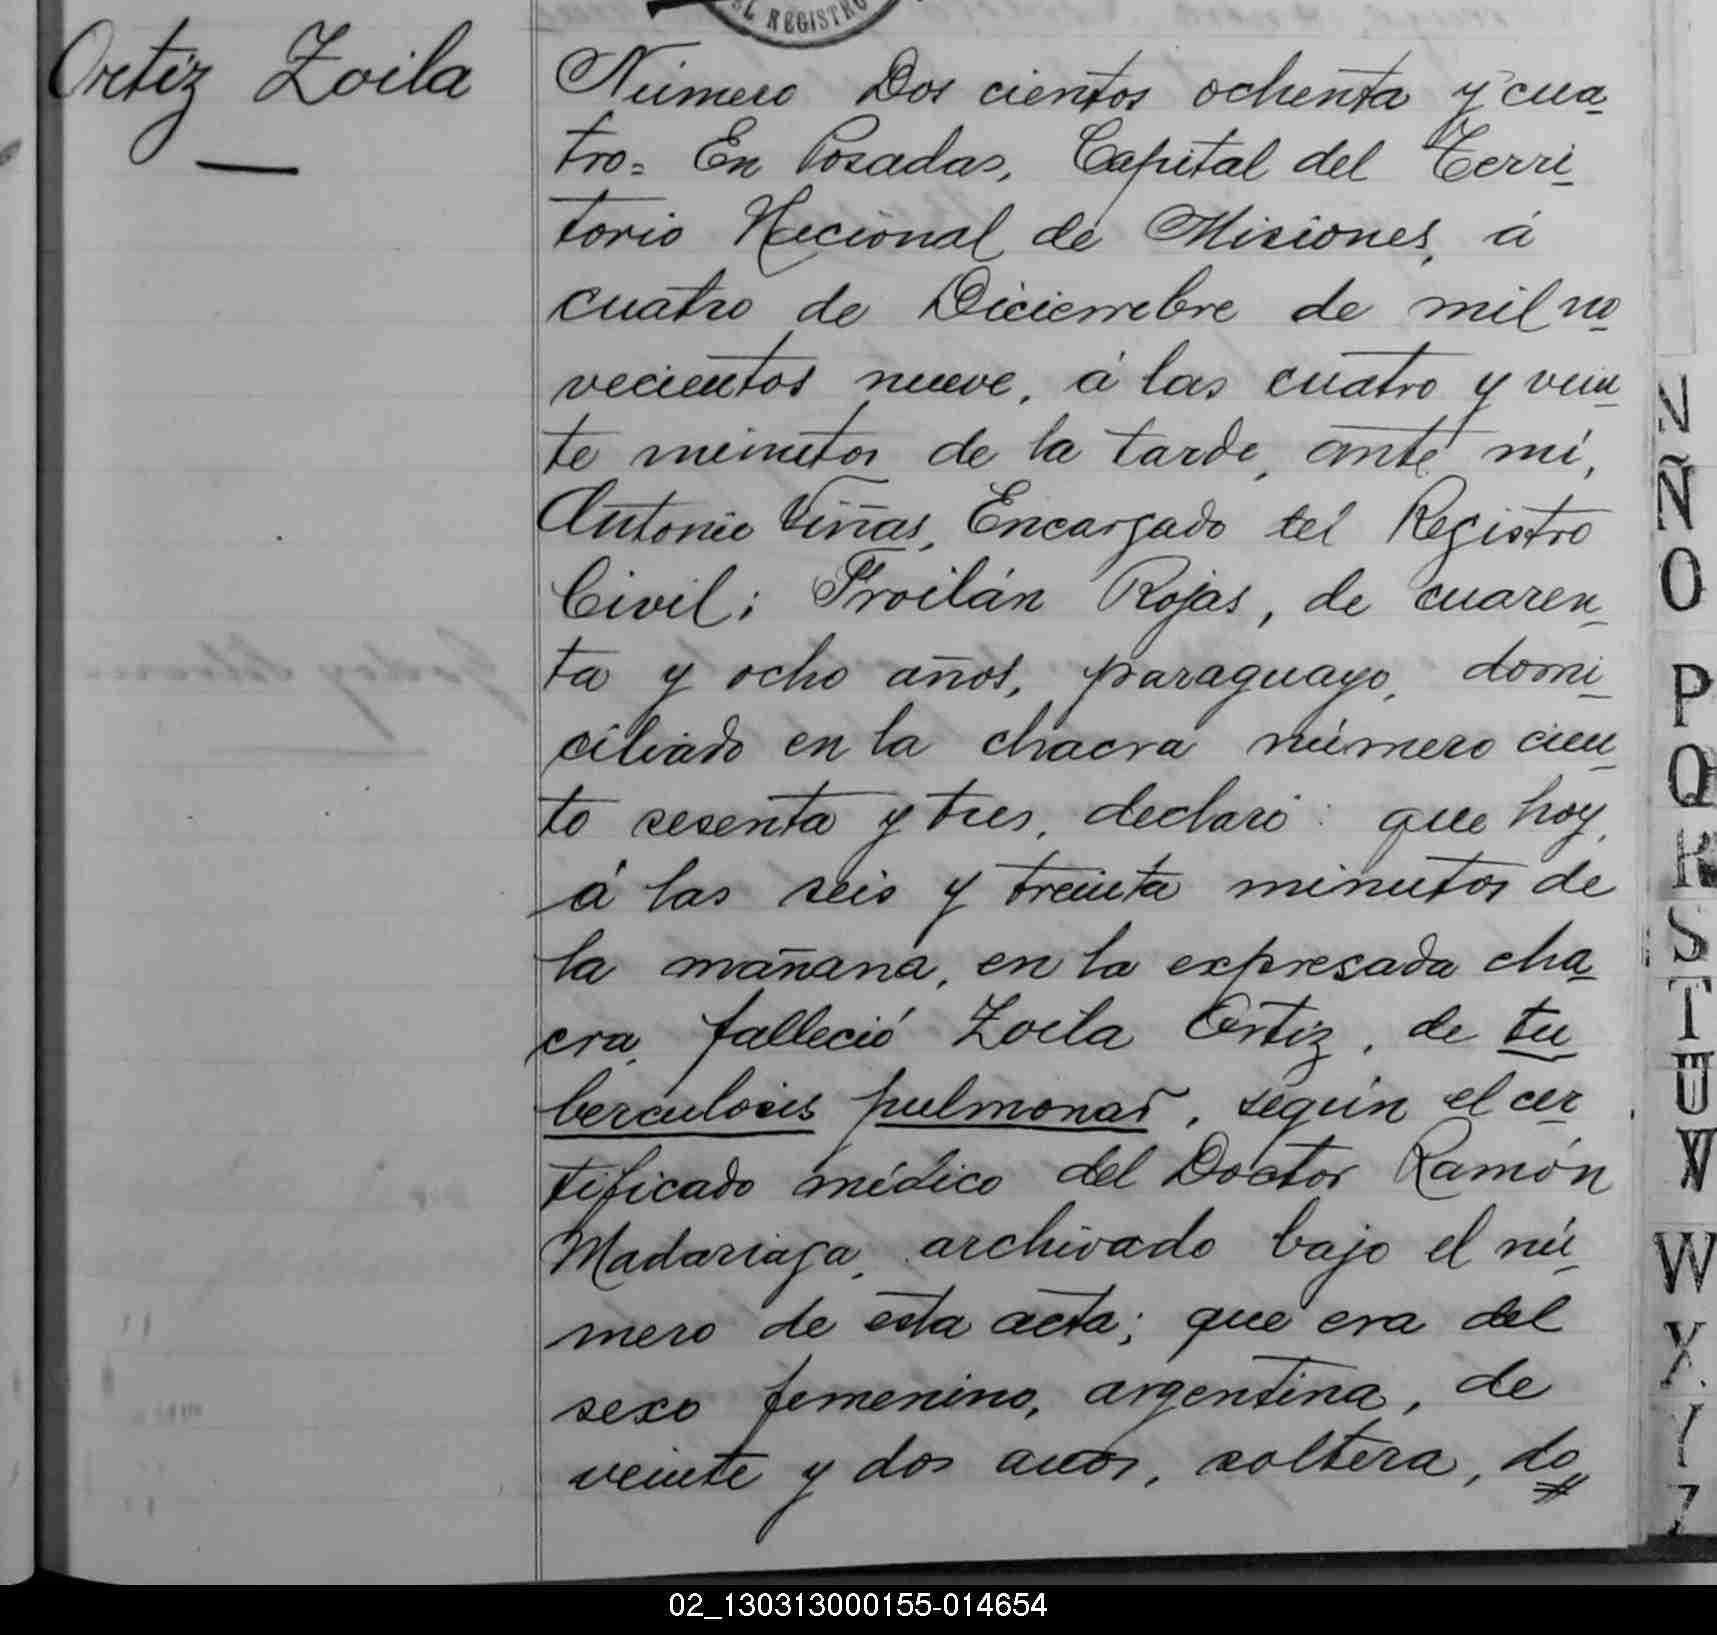 EL REGISTRO
Ortiz Zoila
Número Dos cientos ochenta y cua-
tro= En Posadas, Capital del Terri-
torio Nacional de Misiones, á
cuatro de Diciembre de mil no-
vecientos nueve, á las cuatro y vein-
te minutos de la tarde, ante mí,
Antonio Viñas, Encargado del Registro
Civil; Froilán Rojas, de cuaren-
ta y ocho años, paraguayo, domi-
ciliado en la chacra número cien-
to sesenta y tres, declaró: que hoy,
á las seis y treinta minutos de
la mañana, en la expresada cha-
cra, falleció Zoila Ortiz, de tu
berculosis pulmonar, según el cer-
tificado médico del Doctor Ramón
Madariaga, archivado bajo el nú-
mero de esta acta; que era del
sexo femenino, argentina, de
veinte y dos años, soltera, do=
N
Ñ
O
P
Q
R
S
T
U
V
W
X
Y
Z
02_130313000155-014654